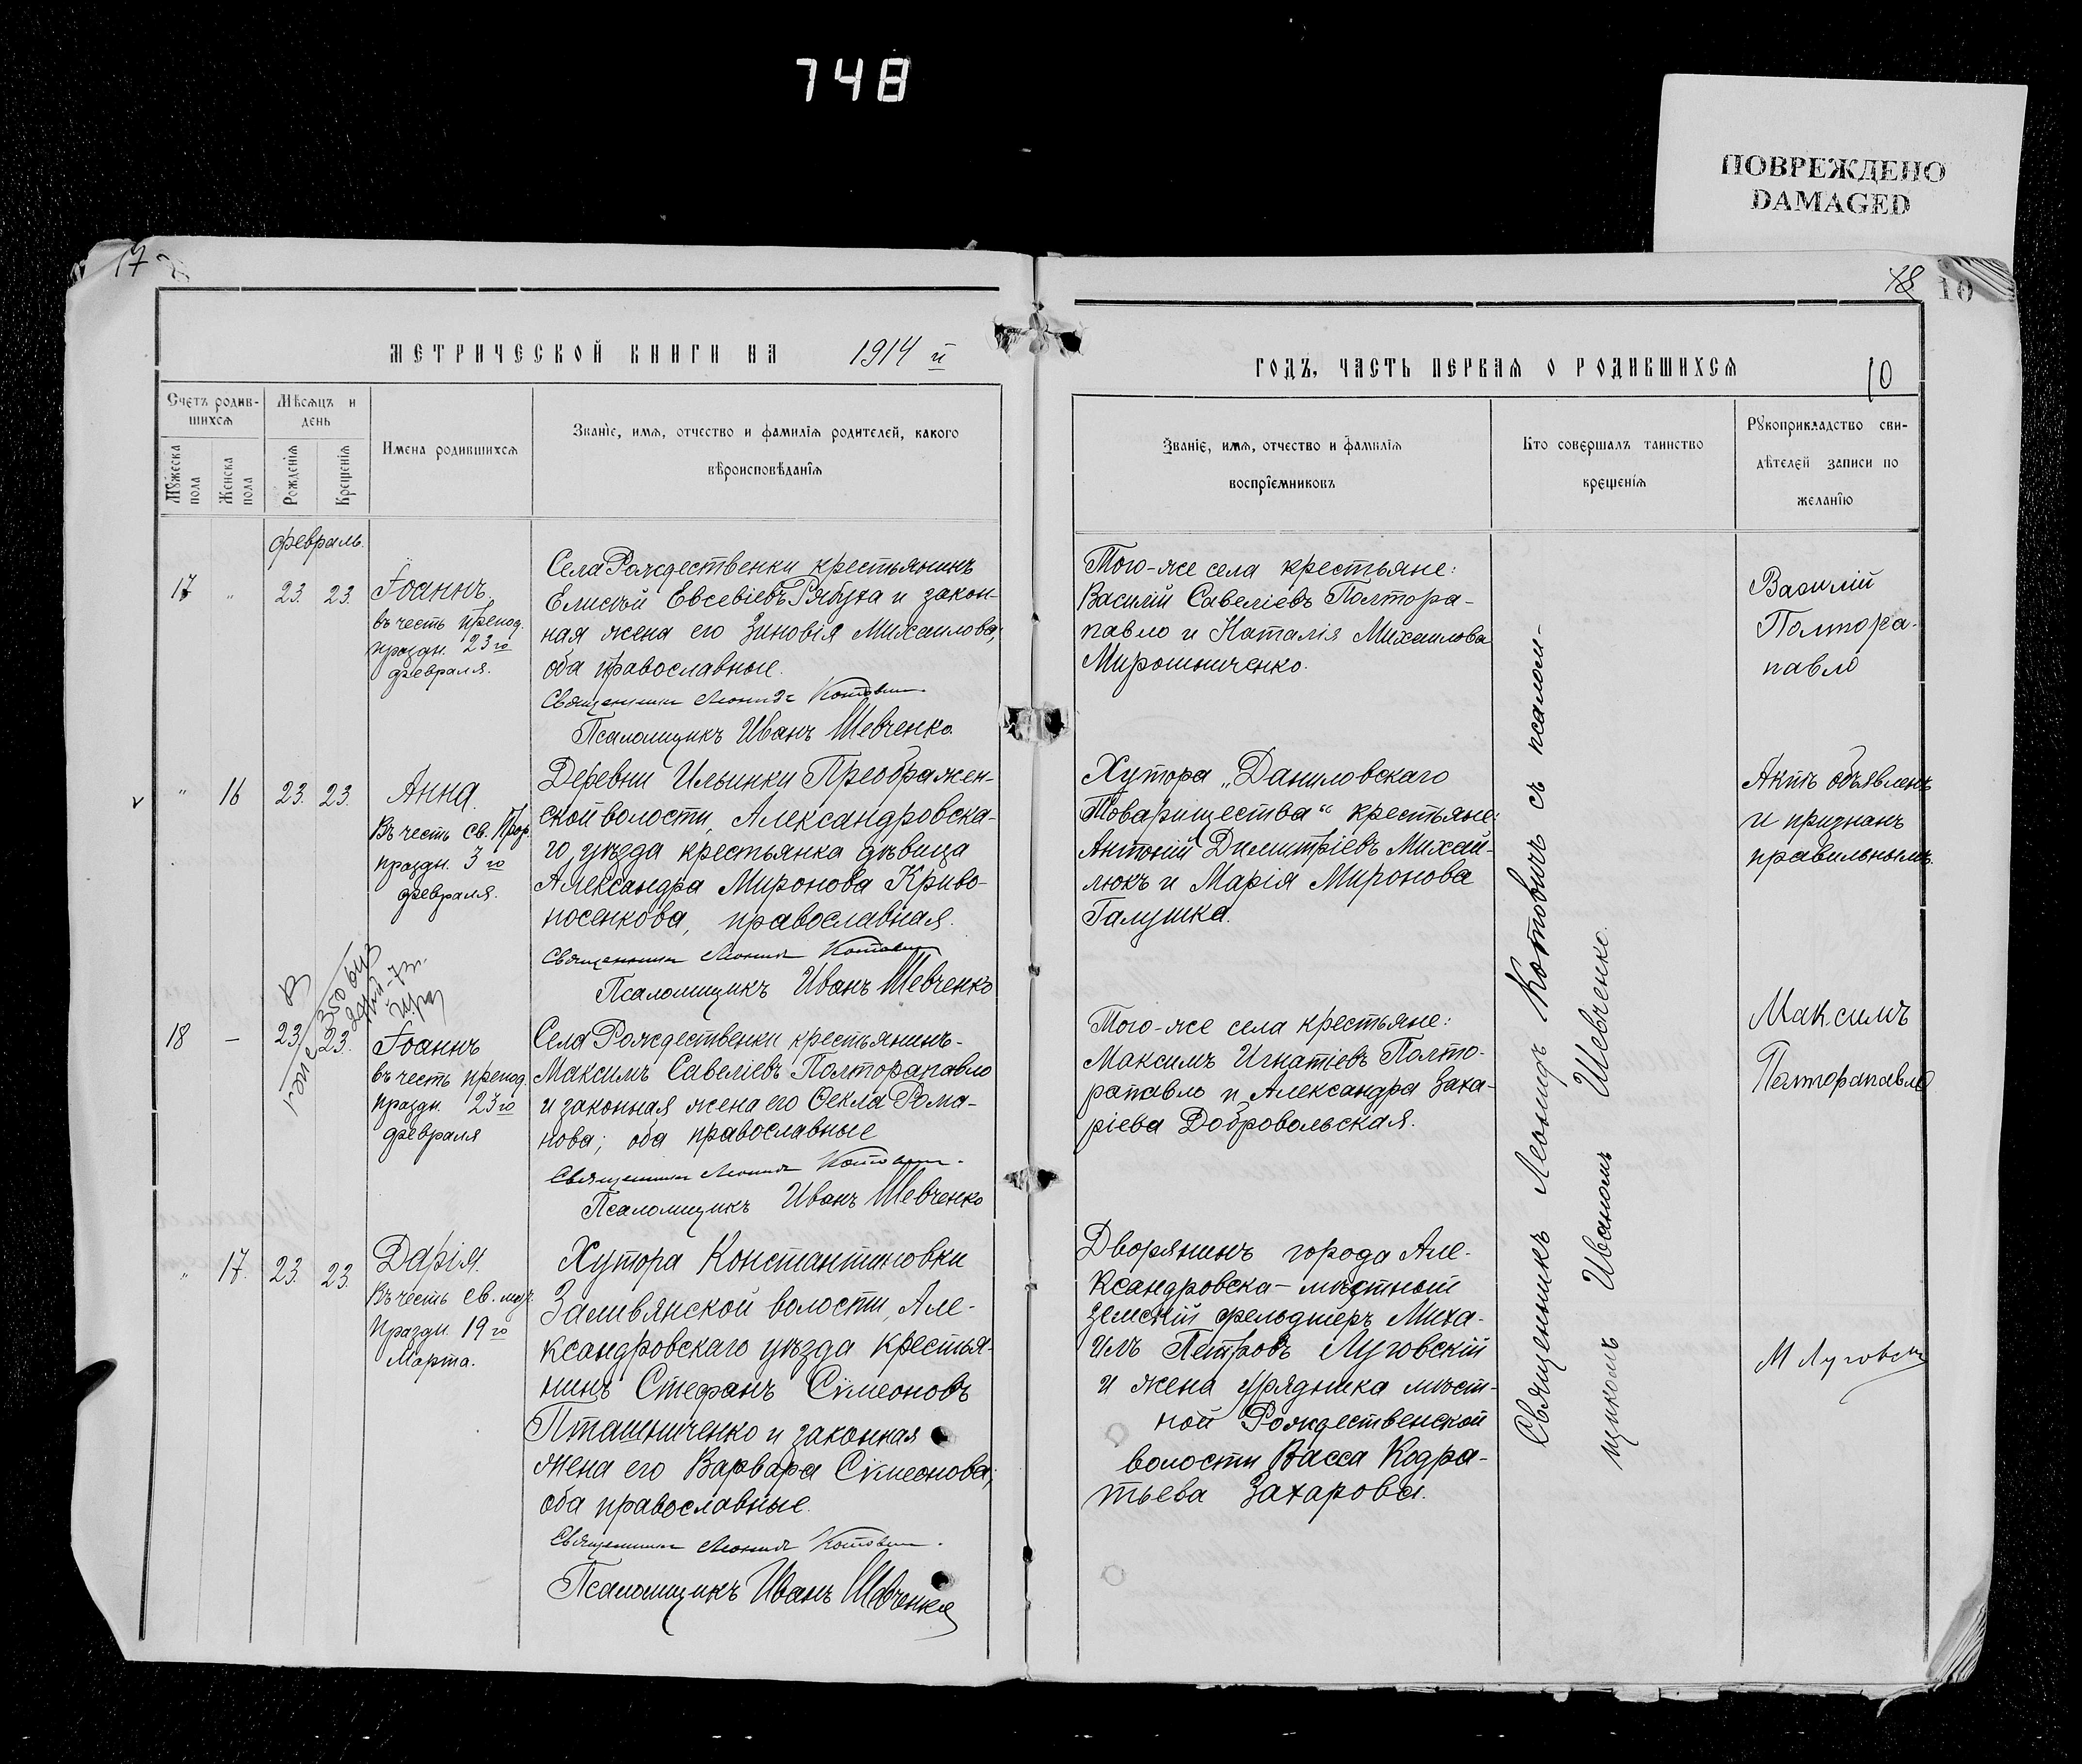 748
ПОВРЕЖДЕНО
DAMAGED
17
18
10
МЕТРИЧЕСКОЙ КНИГИ НА 1914 й
ГОДЪ, ЧАСТЬ ПЕРВАЯ О РОДИВШИХСЯ
10
Счетъ родив-
шихся
Мужеска
пола
Женска
пола
Мѣсяцъ и
день
Рожденія
Крещенія
Имена родившихся
Званіе, имя, отчество и фамилія родителей, какого
вѣроисповѣданія
Званіе, имя, отчество и фамилія
воспріемниковъ
Кто совершалъ таинство
крещенія
Рукоприкладство сви-
дѣтелей записи по
желанію
февраль.
17 „ 23. 23.
Іоаннъ
въ честь препод.
праздн. 23го
февраля.
Села Рождественки крестьянинъ
Елисей Евсевіевъ Рябуха и закон-
ная жена его Зиновія Михаилова;
оба православные.
Священникъ Леонидъ Котовичъ
Псаломщикъ Иванъ Шевченко
Того-же села крестьяне:
Василій Савеліевъ Полтора-
павло и Наталія Михаилова
Мирошниченко.
Василій
Полтора-
павло
„ 16 23. 23.
Анна.
Въ честь св. Прор.
праздн. 3го
февраля.
Деревни Ильинки Преображен-
ской волости, Александровска-
го уѣзда крестьянка дѣвица
Александра Миронова Криво-
носенкова, православная.
Священникъ Леонидъ Котовичъ
Псаломщикъ Иванъ Шевченко
Хутора „Даниловскаго
Товарищества“ крестьяне:
Антоній Димитріевъ Михай-
люкъ и Марія Миронова
Галушка.
Актъ объявленъ
и признанъ
правильнымъ.
18 — 23. 23.
Іоаннъ
въ честь препод.
праздн. 23го
февраля
Села Рождественки крестьянинъ-
Максимъ Савеліевъ Полторапавло
и законная жена его Ѳекла Рома-
нова; оба православные
Священникъ Леонидъ Котовичъ
Псаломщикъ Иванъ Шевченко
Того-же села крестьяне:
Максимъ Игнатіевъ Полто-
рапавло и Александра Заха-
ріева Добровольская.
Максимъ
Полторапавло
„ 17. 23. 23
Дарія.
Въ честь св. муч.
Праздн. 19го
Марта.
Хутора Константиновки
Заливянской волости, Але-
ксандровскаго уѣзда крестья-
нинъ Стефанъ Сѵмеоновъ
Пташниченко и законная
жена его Варвара Сѵмеонова;
оба православные.
Священникъ Леонидъ Котовичъ.
Псаломщикъ Иванъ Шевченко
Дворянинъ города Але-
ксандровска - мѣстный
земскій фельдшеръ Миха-
илъ Петровъ Луговскій
и жена урядника мѣст-
ной Рождественской
волости Васса Кодра-
тьева Захарова.
М Луговскій
Священникъ Леонидъ Котовичъ съ псалом-
щикомъ Иваномъ Шевченко.